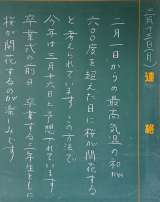 二月十三日(月)
連絡
二月一日からの最高気温の和が
六〇〇度を超えた日に桜が開花する
と考えられています。この方法で
今年は三月十六日と予想されています
卒業式の前日 卒業する三年生ともに
桜が開花するのが楽しみです